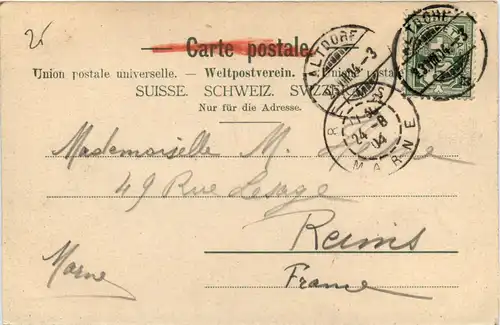 Carte postale.
Union postale universelle. – Weltpostverein. – Unione postale
SUISSE. SCHWEIZ. SVIZZERA
Nur für die Adresse.
ALTDORF
ALTDORF
REIMS
24 - 8
04
MARNE
Mademoiselle M.
49 Rue Lesage
Reims
Marne
France